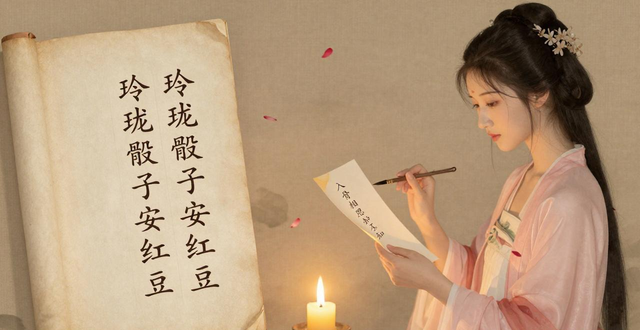 玲珑骰子安红豆
玲珑骰子安红豆
入骨相思知不知